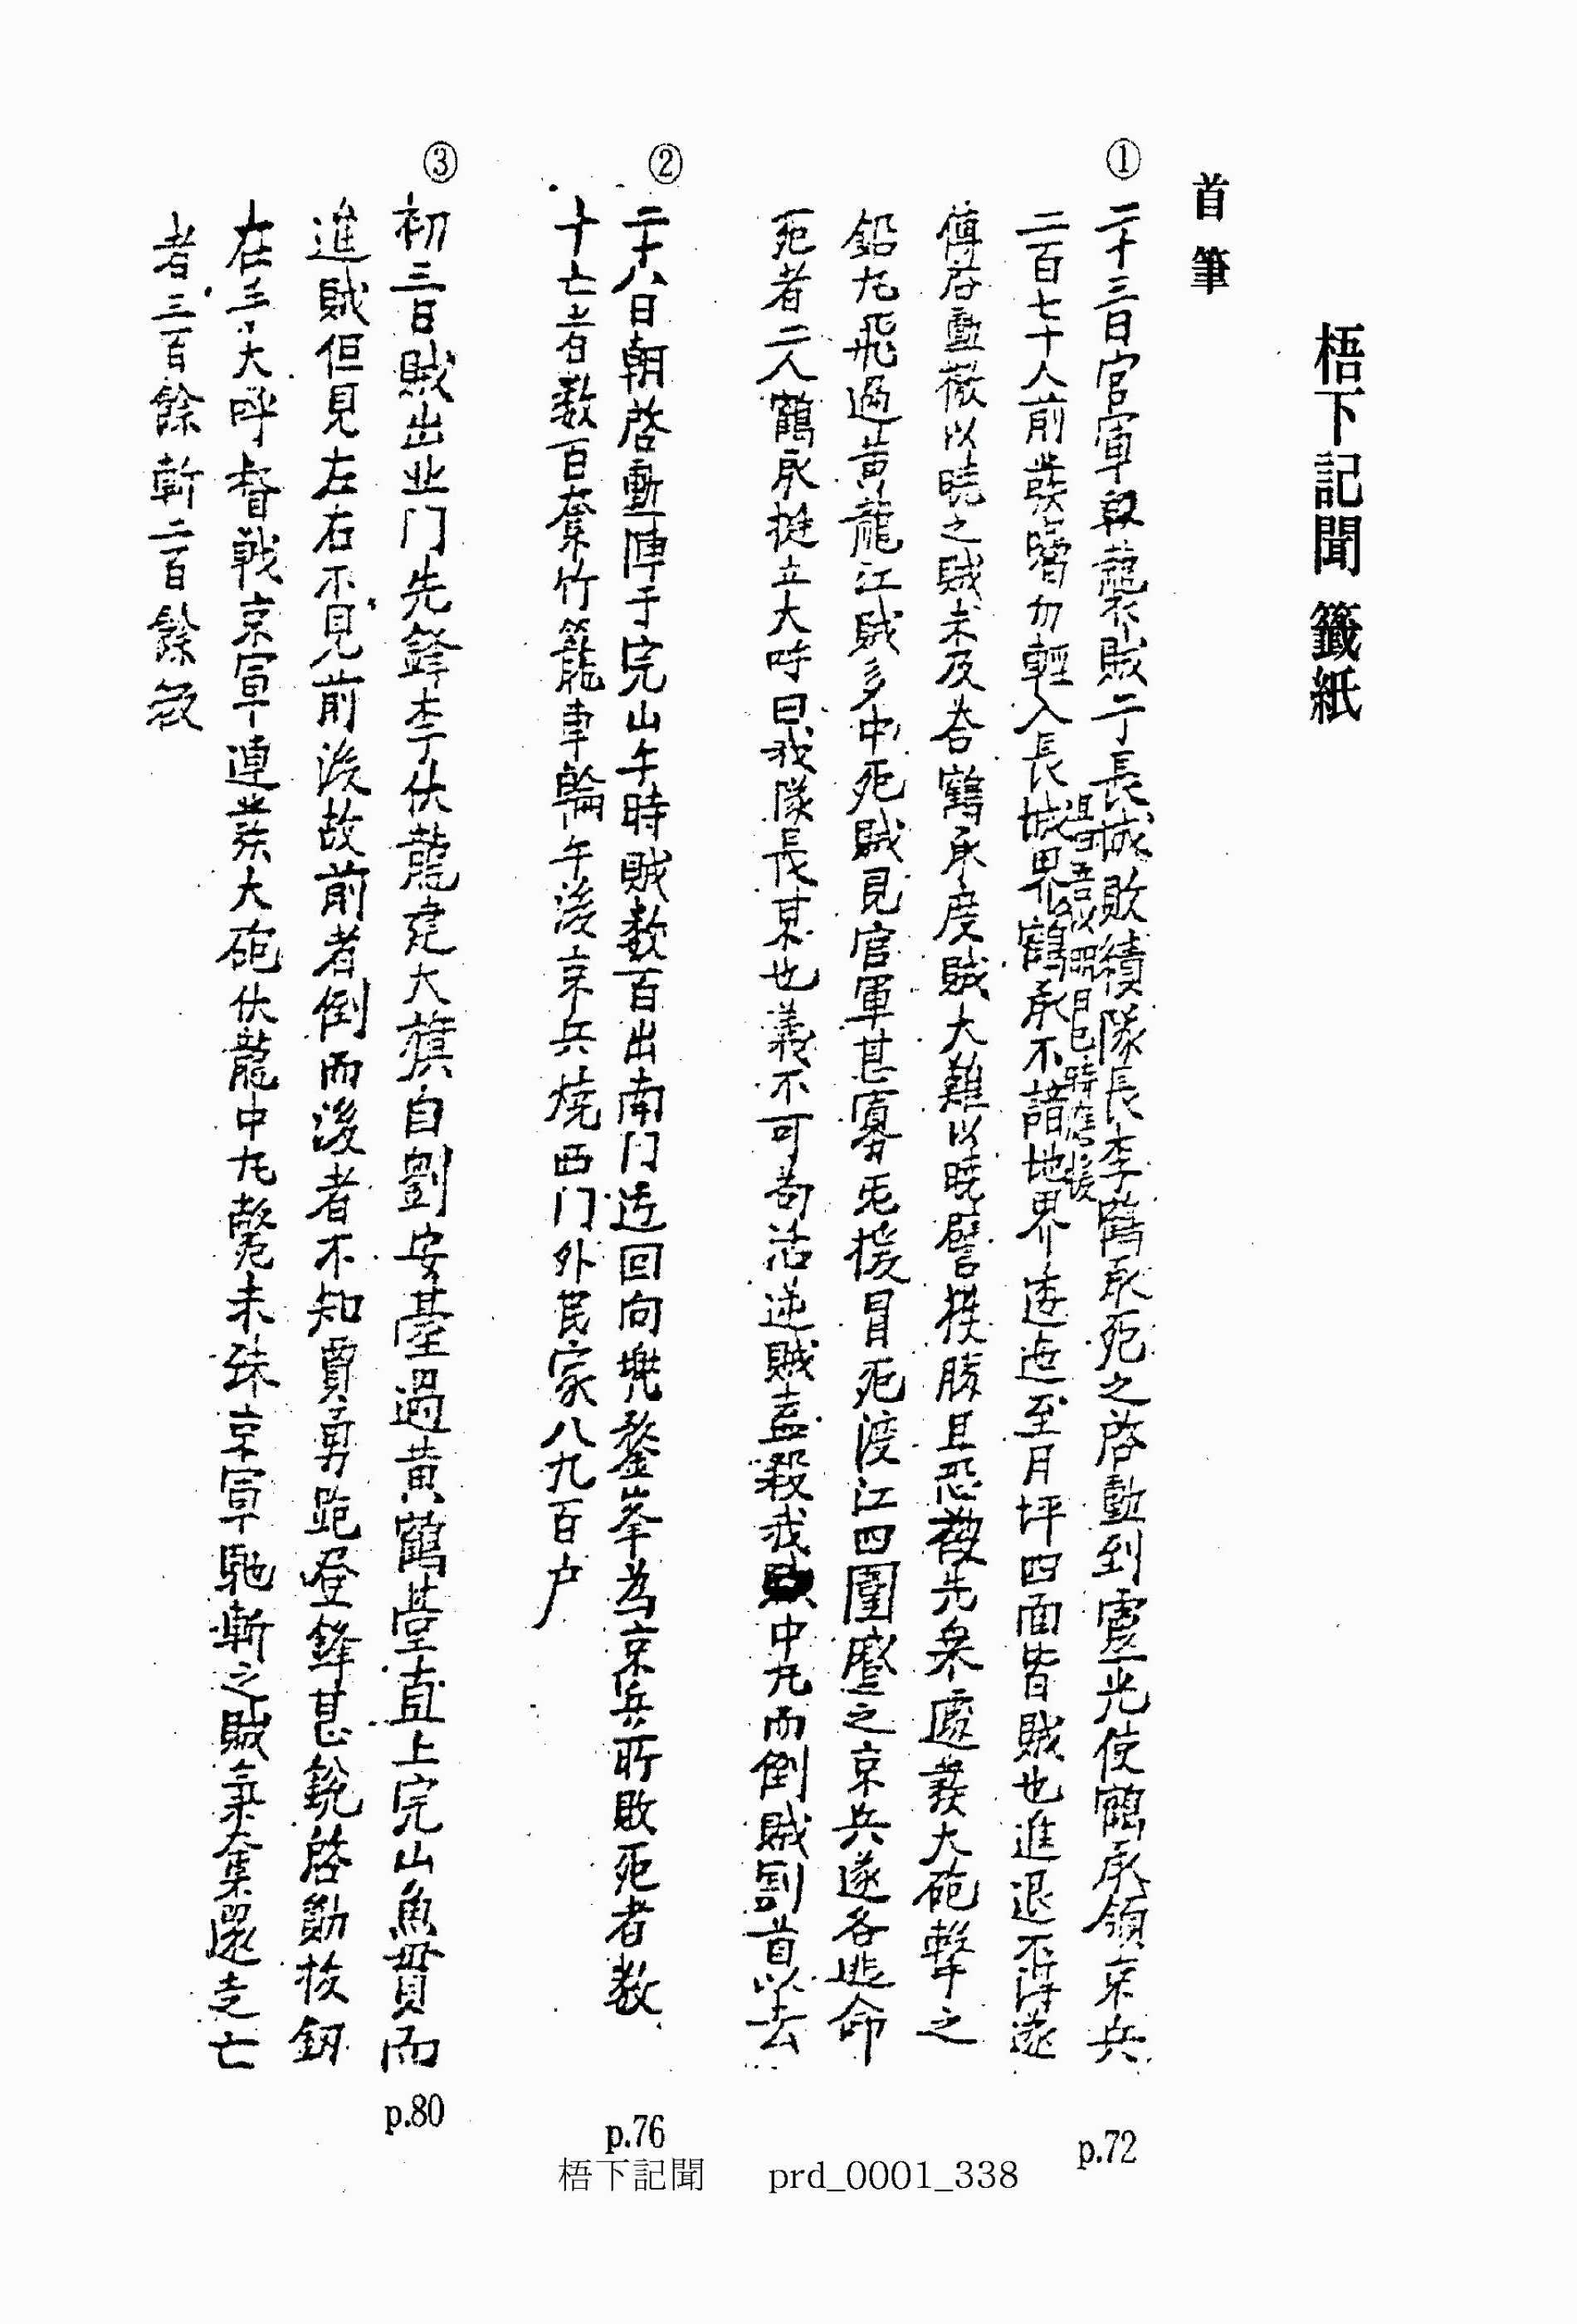 梧下記聞 籤紙
首筆
①
二十三日官軍與襲賊于長城敗績隊長李鶴承死之啓勳到靈光使鶴承領京兵
二百七十人前發噡勿輕入長城界鶴承不諳地界迤迤至月坪四面皆賊也進退不得遂
傳啓勳檄以曉之賊未及答鶴承度賊大難以曉譬橫勝且恐先衆遽發大砲擊之
鉛丸飛過黃龍江賊多中死賊見官軍甚寡无援冒死渡江四圍蹙之京兵遂各逃命
死者二人鶴承挺立大呼曰我隊長某也義不可苟活逆賊盍殺我中丸而倒賊割首以去
p.72
②
二十八日朝啓勳陣于完山午時賊数百出南门迂回向兠鍪峯為京兵所敗死者数
十亡者数百奪竹籠車輪午後京兵燒西门外民家八九百户
p.76
③
初三日賊出北门先鋒李伏龍建大旗自劉安臺過黃鶴臺直上完山魚貫而
進賊但見左右不見前後故前者倒而後者不知賈勇跑登鋒甚銳啓勳拔釼
在手大呼督戰京軍連發大砲伏龍中丸斃未殊京軍馳斬之賊氣奪還走亡
者三百餘斬二百餘級
p.80
梧下記聞 prd_0001_338